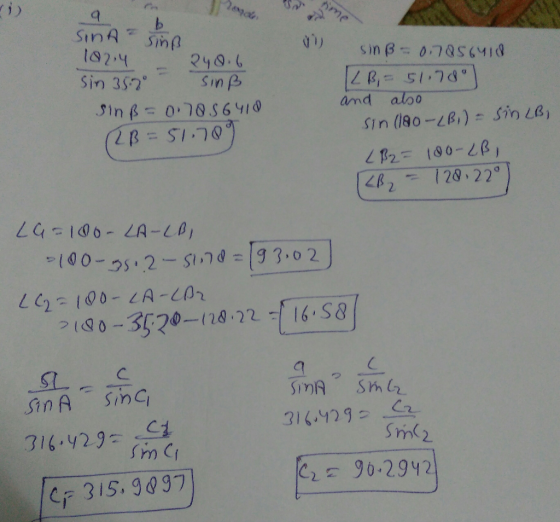 (i)
a/sinA = b/sinB
182.4/sin 35.2° = 248.6/sinB
sinB = 0.7856418
∠B = 51.78°
(ii)
sinB = 0.7856418
∠B₁ = 51.78°
and also
sin(180-∠B₁) = sin∠B₁
∠B₂ = 180-∠B₁
∠B₂ = 128.22°
∠C₁ = 180-∠A-∠B₁
=180-35.2-51.78 = 93.02
∠C₂ = 180-∠A-∠B₂
=180-35.20-128.22 = 16.58
a/sinA = c/sinC₁
316.429 = C₁/sinC₁
C₁ = 315.9897
a/sinA = c/sinC₂
316.429 = C₂/sinC₂
C₂ = 90.2942